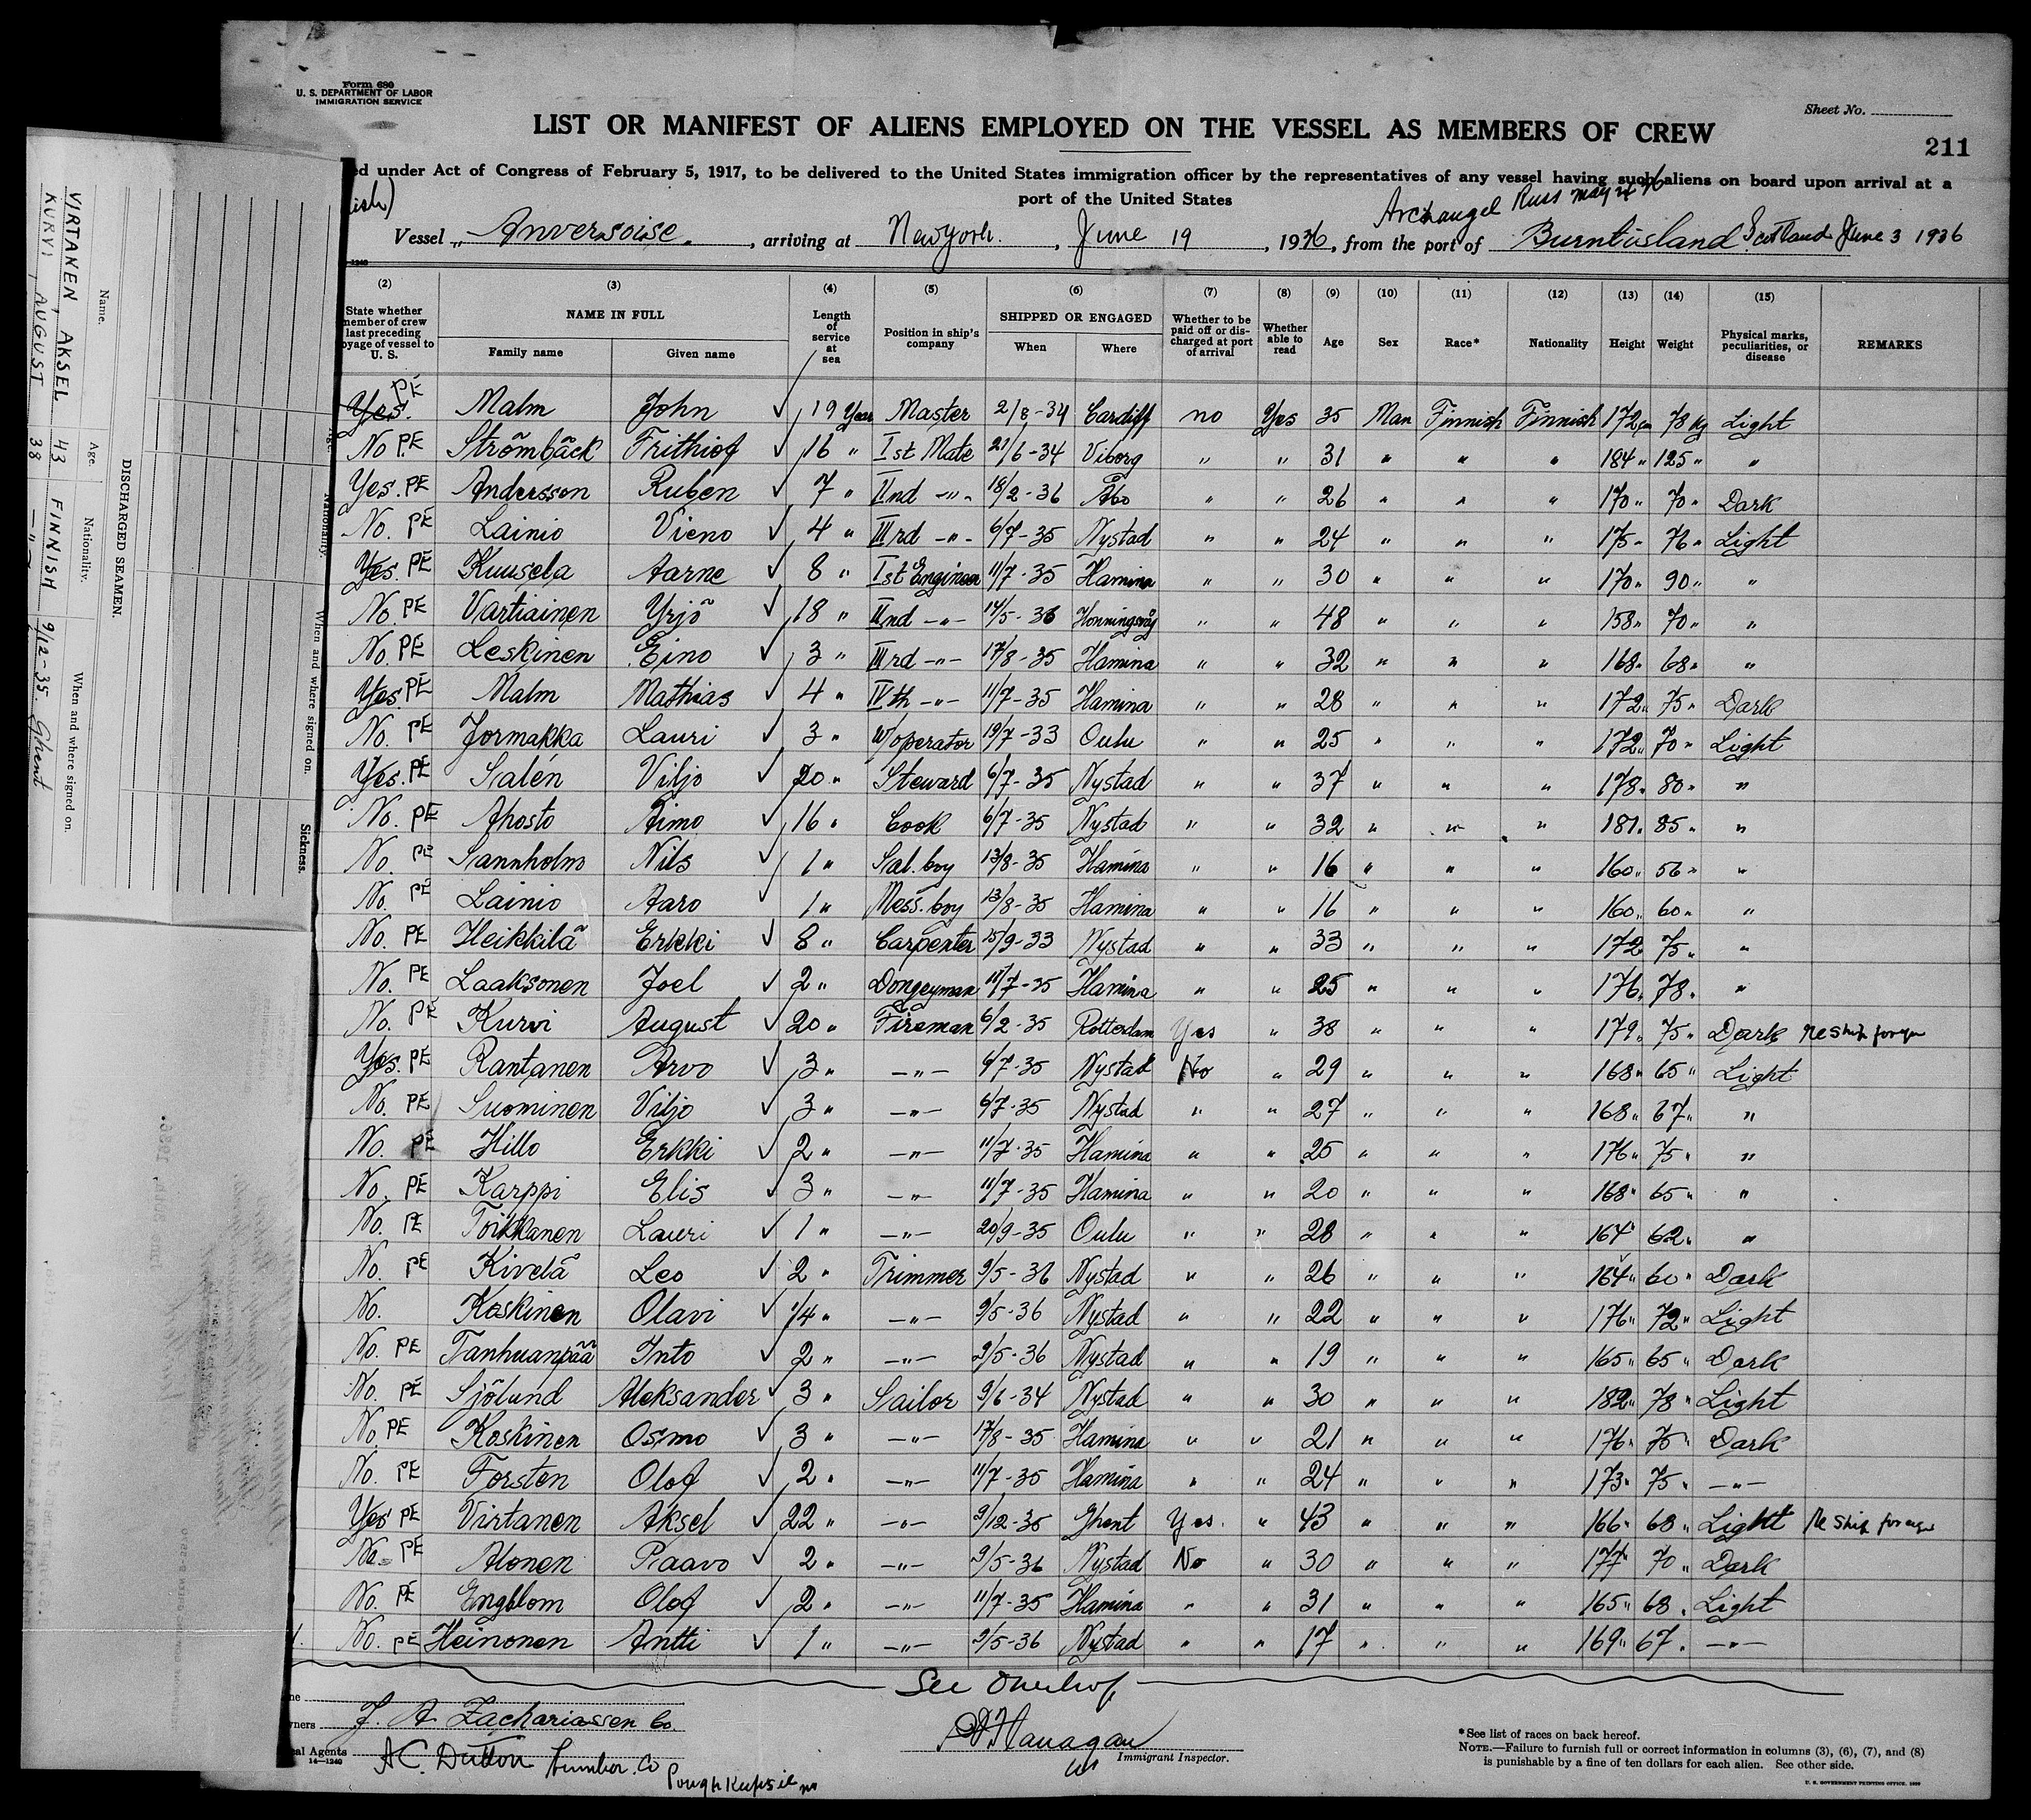 Form 680
U. S. DEPARTMENT OF LABOR
IMMIGRATION SERVICE
Sheet No.
LIST OR MANIFEST OF ALIENS EMPLOYED ON THE VESSEL AS MEMBERS OF CREW
211
ed under Act of Congress of February 5, 1917, to be delivered to the United States immigration officer by the representatives of any vessel having such aliens on board upon arrival at a
port of the United States
Archangel Russ May 24 36
Vessel „ Anversoise. , arriving at New York. , June 19 , 1936, from the port of Burntisland Scotland June 3 1936
(2) (3) (4) (5) (6) (7) (8) (9) (10) (11) (12) (13) (14) (15)
State whether member of crew last preceding voyage of vessel to U. S. NAME IN FULL Family name Given name Length of service at sea Position in ship's company SHIPPED OR ENGAGED When Where Whether to be paid off or discharged at port of arrival Whether able to read Age Sex Race* Nationality Height Weight Physical marks, peculiarities, or disease REMARKS
Yes. PE Malm John ✓ 19 Year Master 2/8-34 Cardiff no Yes 35 Man Finnish Finnish 172 cm 78 kg Light
No PE Strömbäck Frithiof ✓ 16 " Ist Mate 21/6-34 Viborg " " 31 " " " 184 " 125 " "
Yes. PE Andersson Ruben ✓ 7 " IInd -"- 18/2-36 Åbo " " 26 " " " 170 " 70 " Dark
No. PE Lainio Vieno ✓ 4 " IIIrd -"- 6/7-35 Nystad " " 24 " " " 175 " 76 " Light
Yes. PE Kuusela Aarne ✓ 8 " Ist Engineer 11/7-35 Hamina " " 30 " " " 170 " 90 " "
No. PE Vartiainen Yrjö ✓ 18 " IInd -"- 14/5-36 Honningsvåg " " 48 " " " 158 " 70 " "
No. PE Leskinen Eino ✓ 3 " IIIrd -"- 17/8-35 Hamina " " 32 " " " 168 " 68 " "
Yes. PE Malm Mathias ✓ 4 " IVth -"- 11/7-35 Hamina " " 28 " " " 172 " 75 " Dark
No. PE Jormakka Lauri ✓ 3 " W/operator 19/7-33 Oulu " " 25 " " " 172 " 70 " Light
Yes. PE Salén Viljo ✓ 20 " Steward 6/7-35 Nystad " " 37 " " " 178 " 80 " "
No. PE Ahosto Aimo ✓ 16 " Cook 6/7-35 Nystad " " 32 " " " 181 " 85 " "
No. PE Sannholm Nils ✓ 1 " Sal. boy 13/8-35 Hamina " " 16 " " " 160 " 56 " "
No. PE Lainio Aaro ✓ 1 " Mess. boy 13/8-35 Hamina " " 16 " " " 160 " 60 " "
No. PE Heikkilä Erkki ✓ 8 " Carpenter 15/9-33 Nystad " " 33 " " " 172 75 " "
No. PE Laaksonen Joel ✓ 2 " Dongeyman 11/7-35 Hamina " " 25 " " " 176 " 78 " "
No. PE Kurvi August ✓ 20 " Fireman 6/2-35 Rotterdam Yes " 38 " " " 179 " 75 " Dark Re Ship foreign
Yes. PE Rantanen Arvo ✓ 3 " -"- 6/7-35 Nystad No " 29 " " " 168 " 65 " Light
No. PE Suominen Viljo ✓ 3 " -"- 6/7-35 Nystad " " 27 " " " 168 " 67 " "
No. PE Hillo Erkki ✓ 2 " -"- 11/7-35 Hamina " " 25 " " " 176 " 75 " "
No. PE Karppi Elis ✓ 3 " -"- 11/7-35 Hamina " " 20 " " " 168 " 65 " "
No. PE Toikkanen Lauri ✓ 1 " -"- 20/9-35 Oulu " " 28 " " " 164 " 62 " "
No. PE Kivelä Leo ✓ 2 " Trimmer 9/5-36 Nystad " " 26 " " " 164 " 60 " Dark
No. Koskinen Olavi ✓ 1/4 " -"- 9/5-36 Nystad " " 22 " " " 176 " 72 " Light
No. PE Tanhuanpää Into ✓ 2 " -"- 9/5-36 Nystad " " 19 " " " 165 " 65 " Dark
No. PE Sjölund Aleksander ✓ 3 " Sailor 9/6-34 Nystad " " 30 " " " 182 " 78 " Light
No. PE Koskinen Osmo ✓ 3 " -"- 17/8-35 Hamina " " 21 " " " 176 " 75 " Dark
No. PE Forsten Olof ✓ 2 " -"- 11/7-35 Hamina " " 24 " " " 173 " 75 " -"-
Yes PE Virtanen Aksel ✓ 22 " -"- 9/12-35 Ghent Yes. " 43 " " " 166 " 68 " Light Re Ship foreign
No. PE Alonen Paavo ✓ 2 " -"- 9/5-36 Nystad No " 30 " " " 177 " 70 " Dark
No. PE Engblom Olof ✓ 2 " -"- 11/7-35 Hamina " " 31 " " " 165 " 68 " Light
No. PE Heinonen Antti ✓ 1 " -"- 9/5-36 Nystad " " 17 " " " 169 " 67 " -"-
See Overleaf
ners J. A. Zachariassen Co.
Immigrant Inspector.
al Agents A.C. Dutton Lumber. Co Poughkeepsie NY
14—1240
*See list of races on back hereof.
NOTE.—Failure to furnish full or correct information in columns (3), (6), (7), and (8)
is punishable by a fine of ten dollars for each alien. See other side.
U. S. GOVERNMENT PRINTING OFFICE
DISCHARGED SEAMEN.
Name. Age. Nationality. When and where signed on.
VIRTANEN, AKSEL 43 FINNISH 9/12-35. Ghent
KURVI, AUGUST 38 -"-
Nationality. When and where signed on. Sickness.